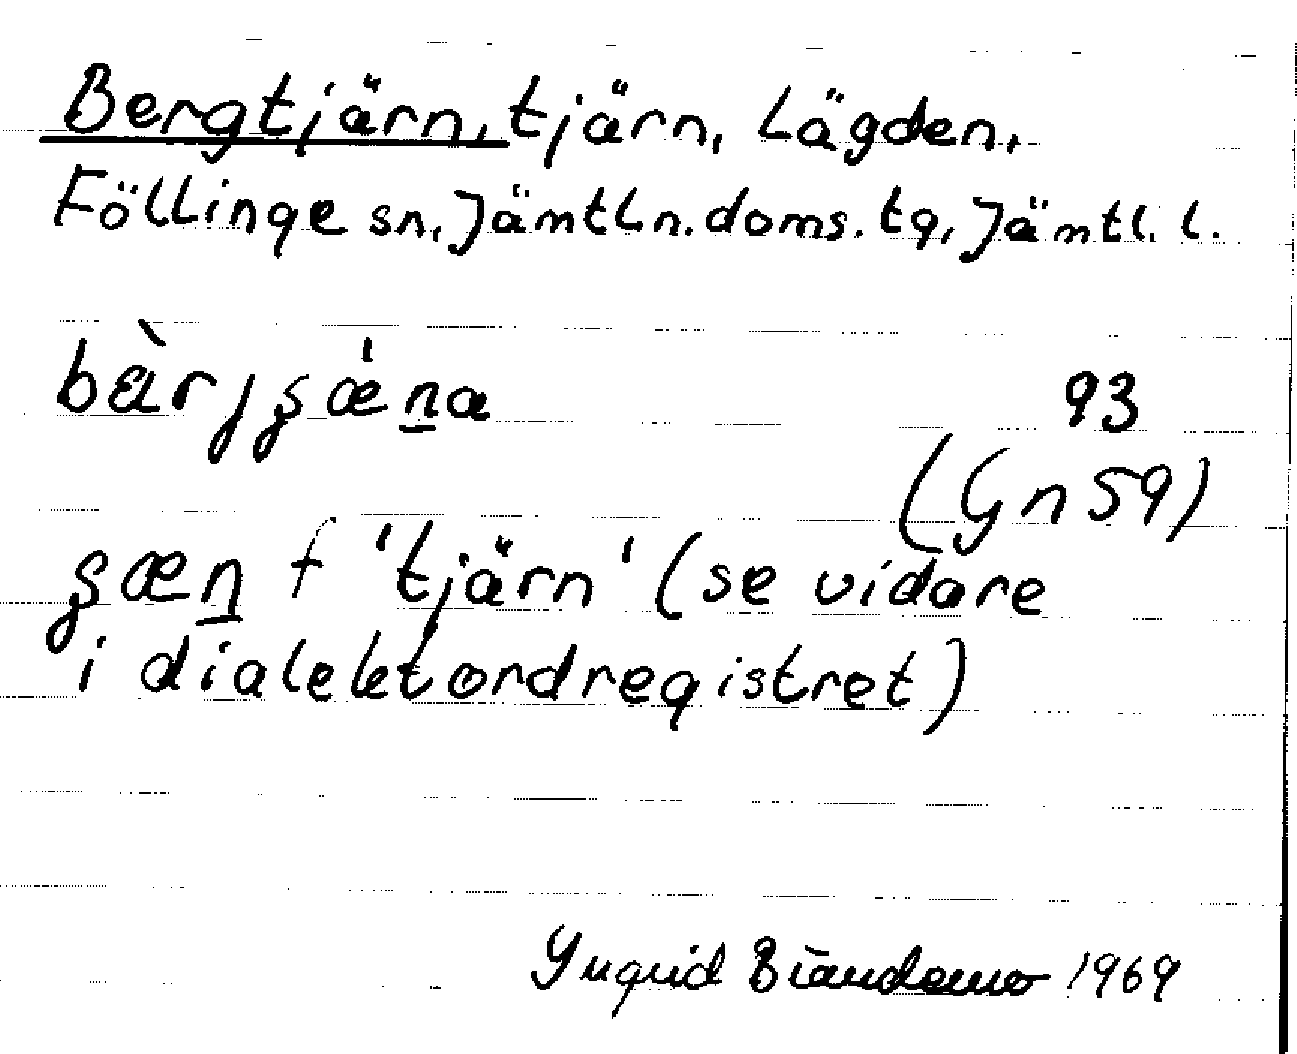 Bergtjärn, tjärn, Lägden,
Föllinge sn, Jämtln. doms. tg, Jämtl. l.
bàrjʂǽṉa 93
(Gn 59)
ʂæṉ f 'tjärn' (se vidare
i dialektordregistret)
Yngrid 1969